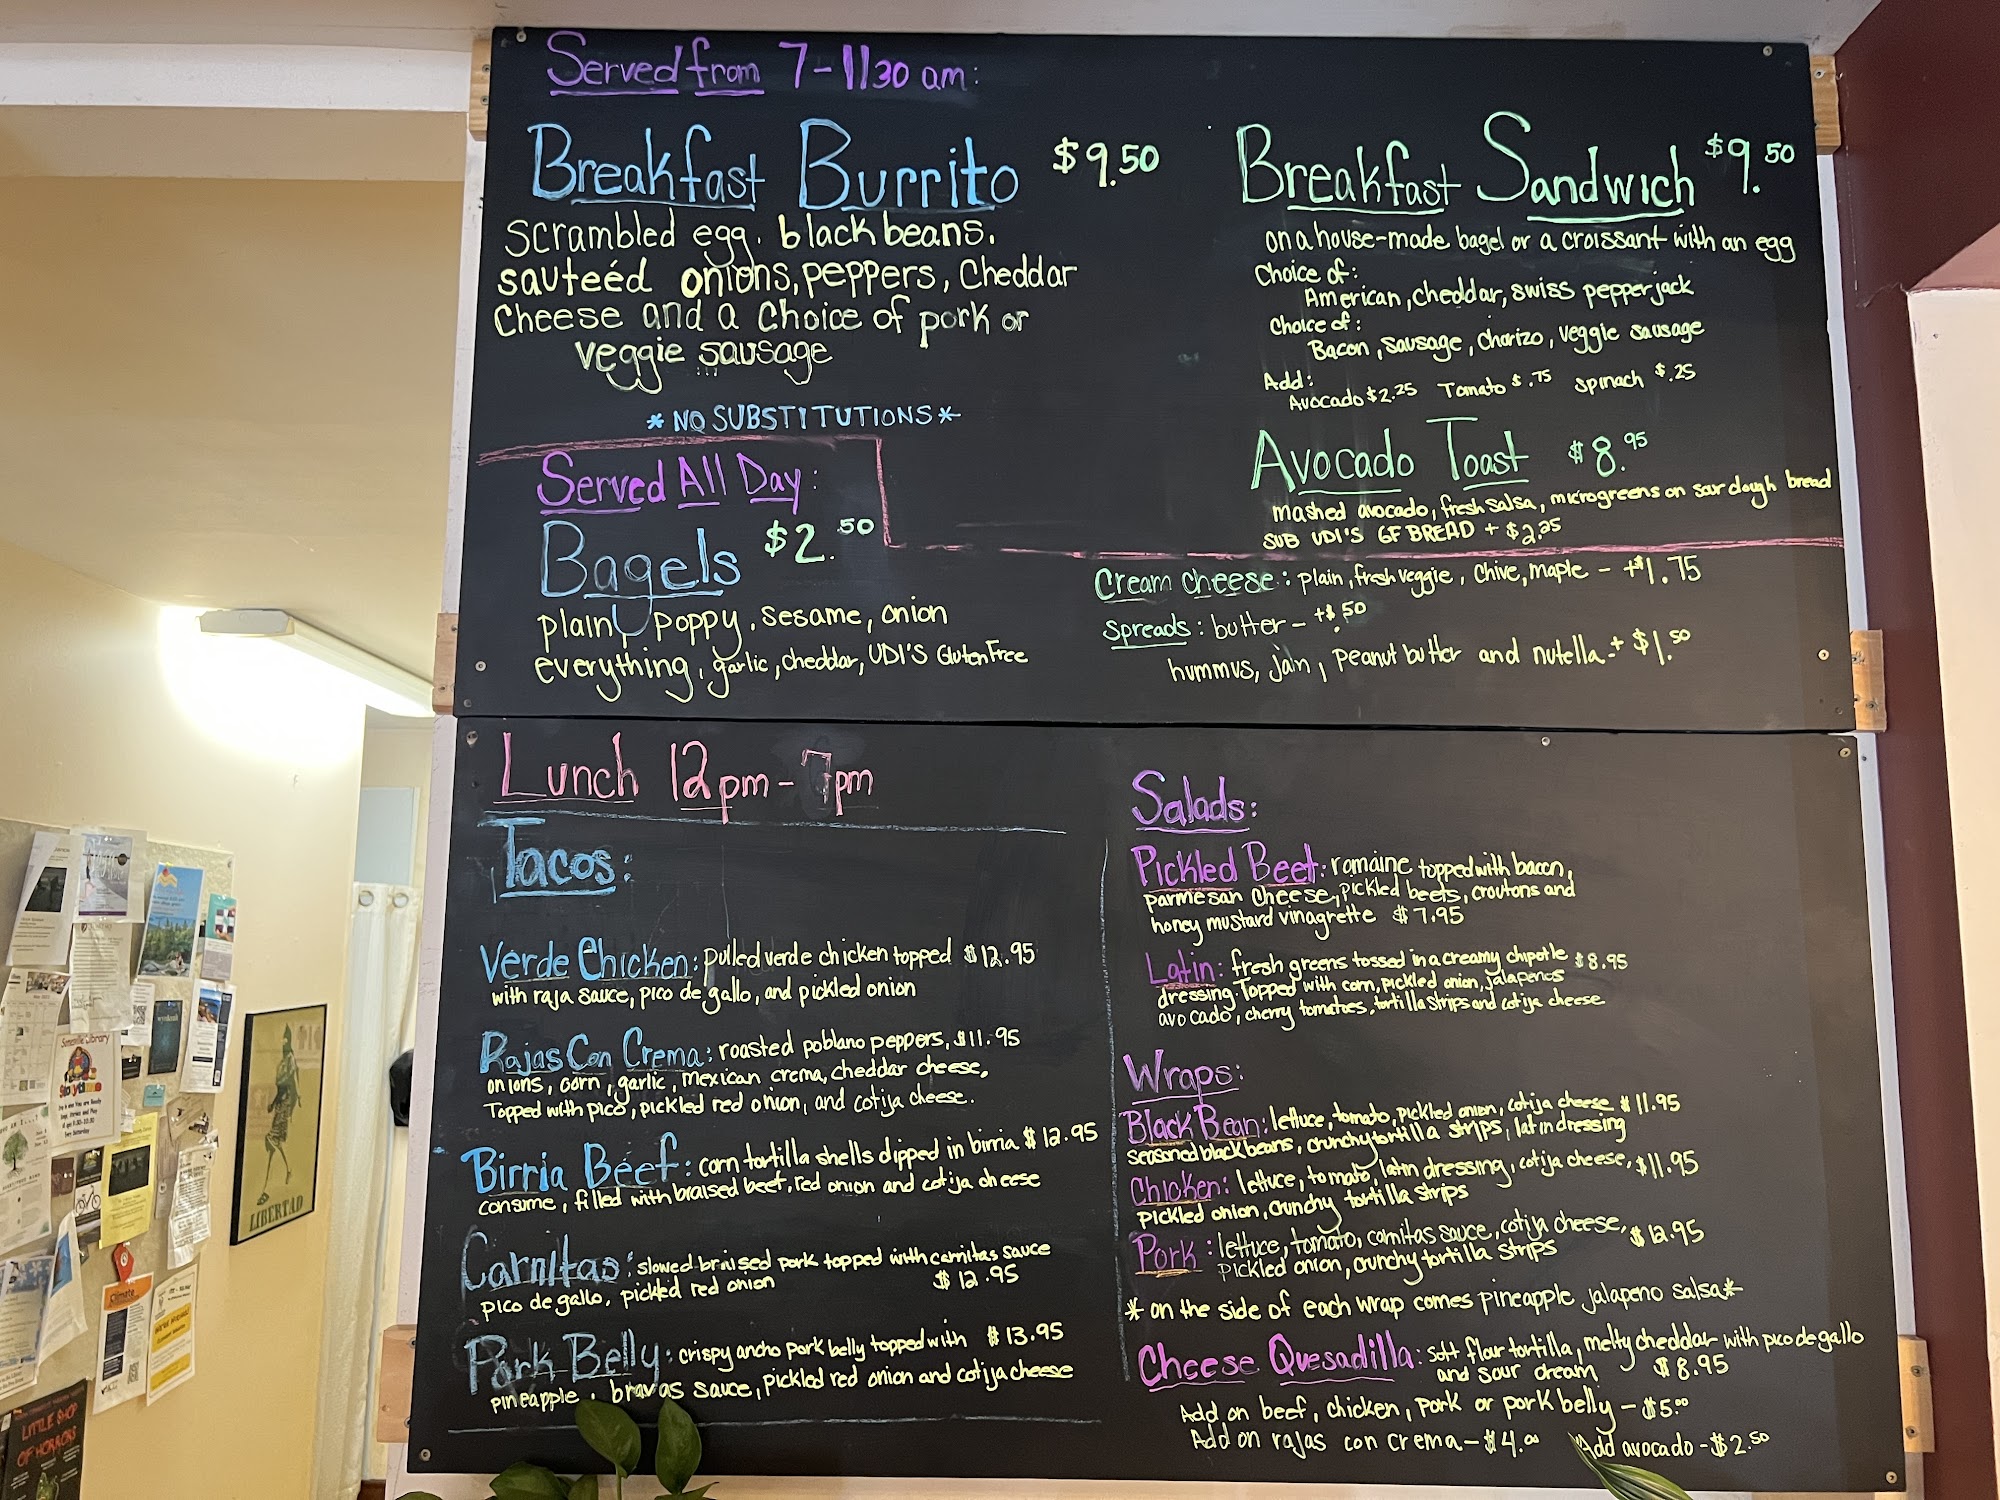 Served from 7-1130 am:
Breakfast Burrito $9.50
scrambled egg. black beans.
sauteéd onions, peppers, Cheddar
Cheese and a choice of pork or
veggie sausage
*NO SUBSTITUTIONS*
Breakfast Sandwich $9.50
on a house-made bagel or a croissant with an egg
Choice of:
American, cheddar, swiss pepperjack
Choice of:
Bacon, sausage, chorizo, veggie sausage
Add:
Avocado $2.25 Tomato $.75 spinach $.25
Avocado Toast $8.95
mashed avocado, fresh salsa, microgreens on sour dough bread
SUB UDI'S GF BREAD + $2.25
Served All Day:
Bagels $2.50
plain, poppy, sesame, onion
everything, garlic, cheddar, UDI'S Gluten Free
Cream cheese: plain, fresh veggie, chive, maple - +$1.75
spreads: butter - +$.50
hummus, jam, peanut butter and nutella - + $1.50
Lunch 12pm - 7pm
Tacos:
Verde Chicken: pulled verde chicken topped $12.95
with raja sauce, pico de gallo, and pickled onion
Rajas Con Crema: roasted poblano peppers, $11.95
onions, corn, garlic, mexican crema, cheddar cheese.
Topped with pico, pickled red onion, and cotija cheese.
Birria Beef: corn tortilla shells dipped in birria $12.95
consume, filled with braised beef, red onion and cotija cheese
Carnitas: slowed braised pork topped with carnitas sauce
pico de gallo, pickled red onion $12.95
Pork Belly: crispy ancho pork belly topped with $13.95
pineapple, bravas sauce, pickled red onion and cotija cheese
Salads:
Pickled Beet: romaine topped with bacon,
parmesan cheese, pickled beets, croutons and
honey mustard vinagrette $7.95
Latin: fresh greens tossed in a creamy chipotle $8.95
dressing. Topped with corn, pickled onion, jalapenos
avocado, cherry tomatoes, tortilla strips and cotija cheese
Wraps:
Black Bean: lettuce, tomato, pickled onion, cotija cheese $11.95
seasoned black beans, crunchy tortilla strips, latin dressing
Chicken: lettuce, tomato, latin dressing, cotija cheese, $11.95
pickled onion, crunchy tortilla strips
Pork: lettuce, tomato, carnitas sauce, cotija cheese, $12.95
pickled onion, crunchy tortilla strips
*on the side of each wrap comes pineapple jalapeno salsa*
Cheese Quesadilla: soft flour tortilla, melty cheddar with pico de gallo
and sour cream $8.95
Add on beef, chicken, pork or pork belly - $5.00
Add on rajas con crema - $4.00 Add avocado - $2.50
LIBERTAD
Storytime
Climate
LITTLE SHOP
OF HORRORS